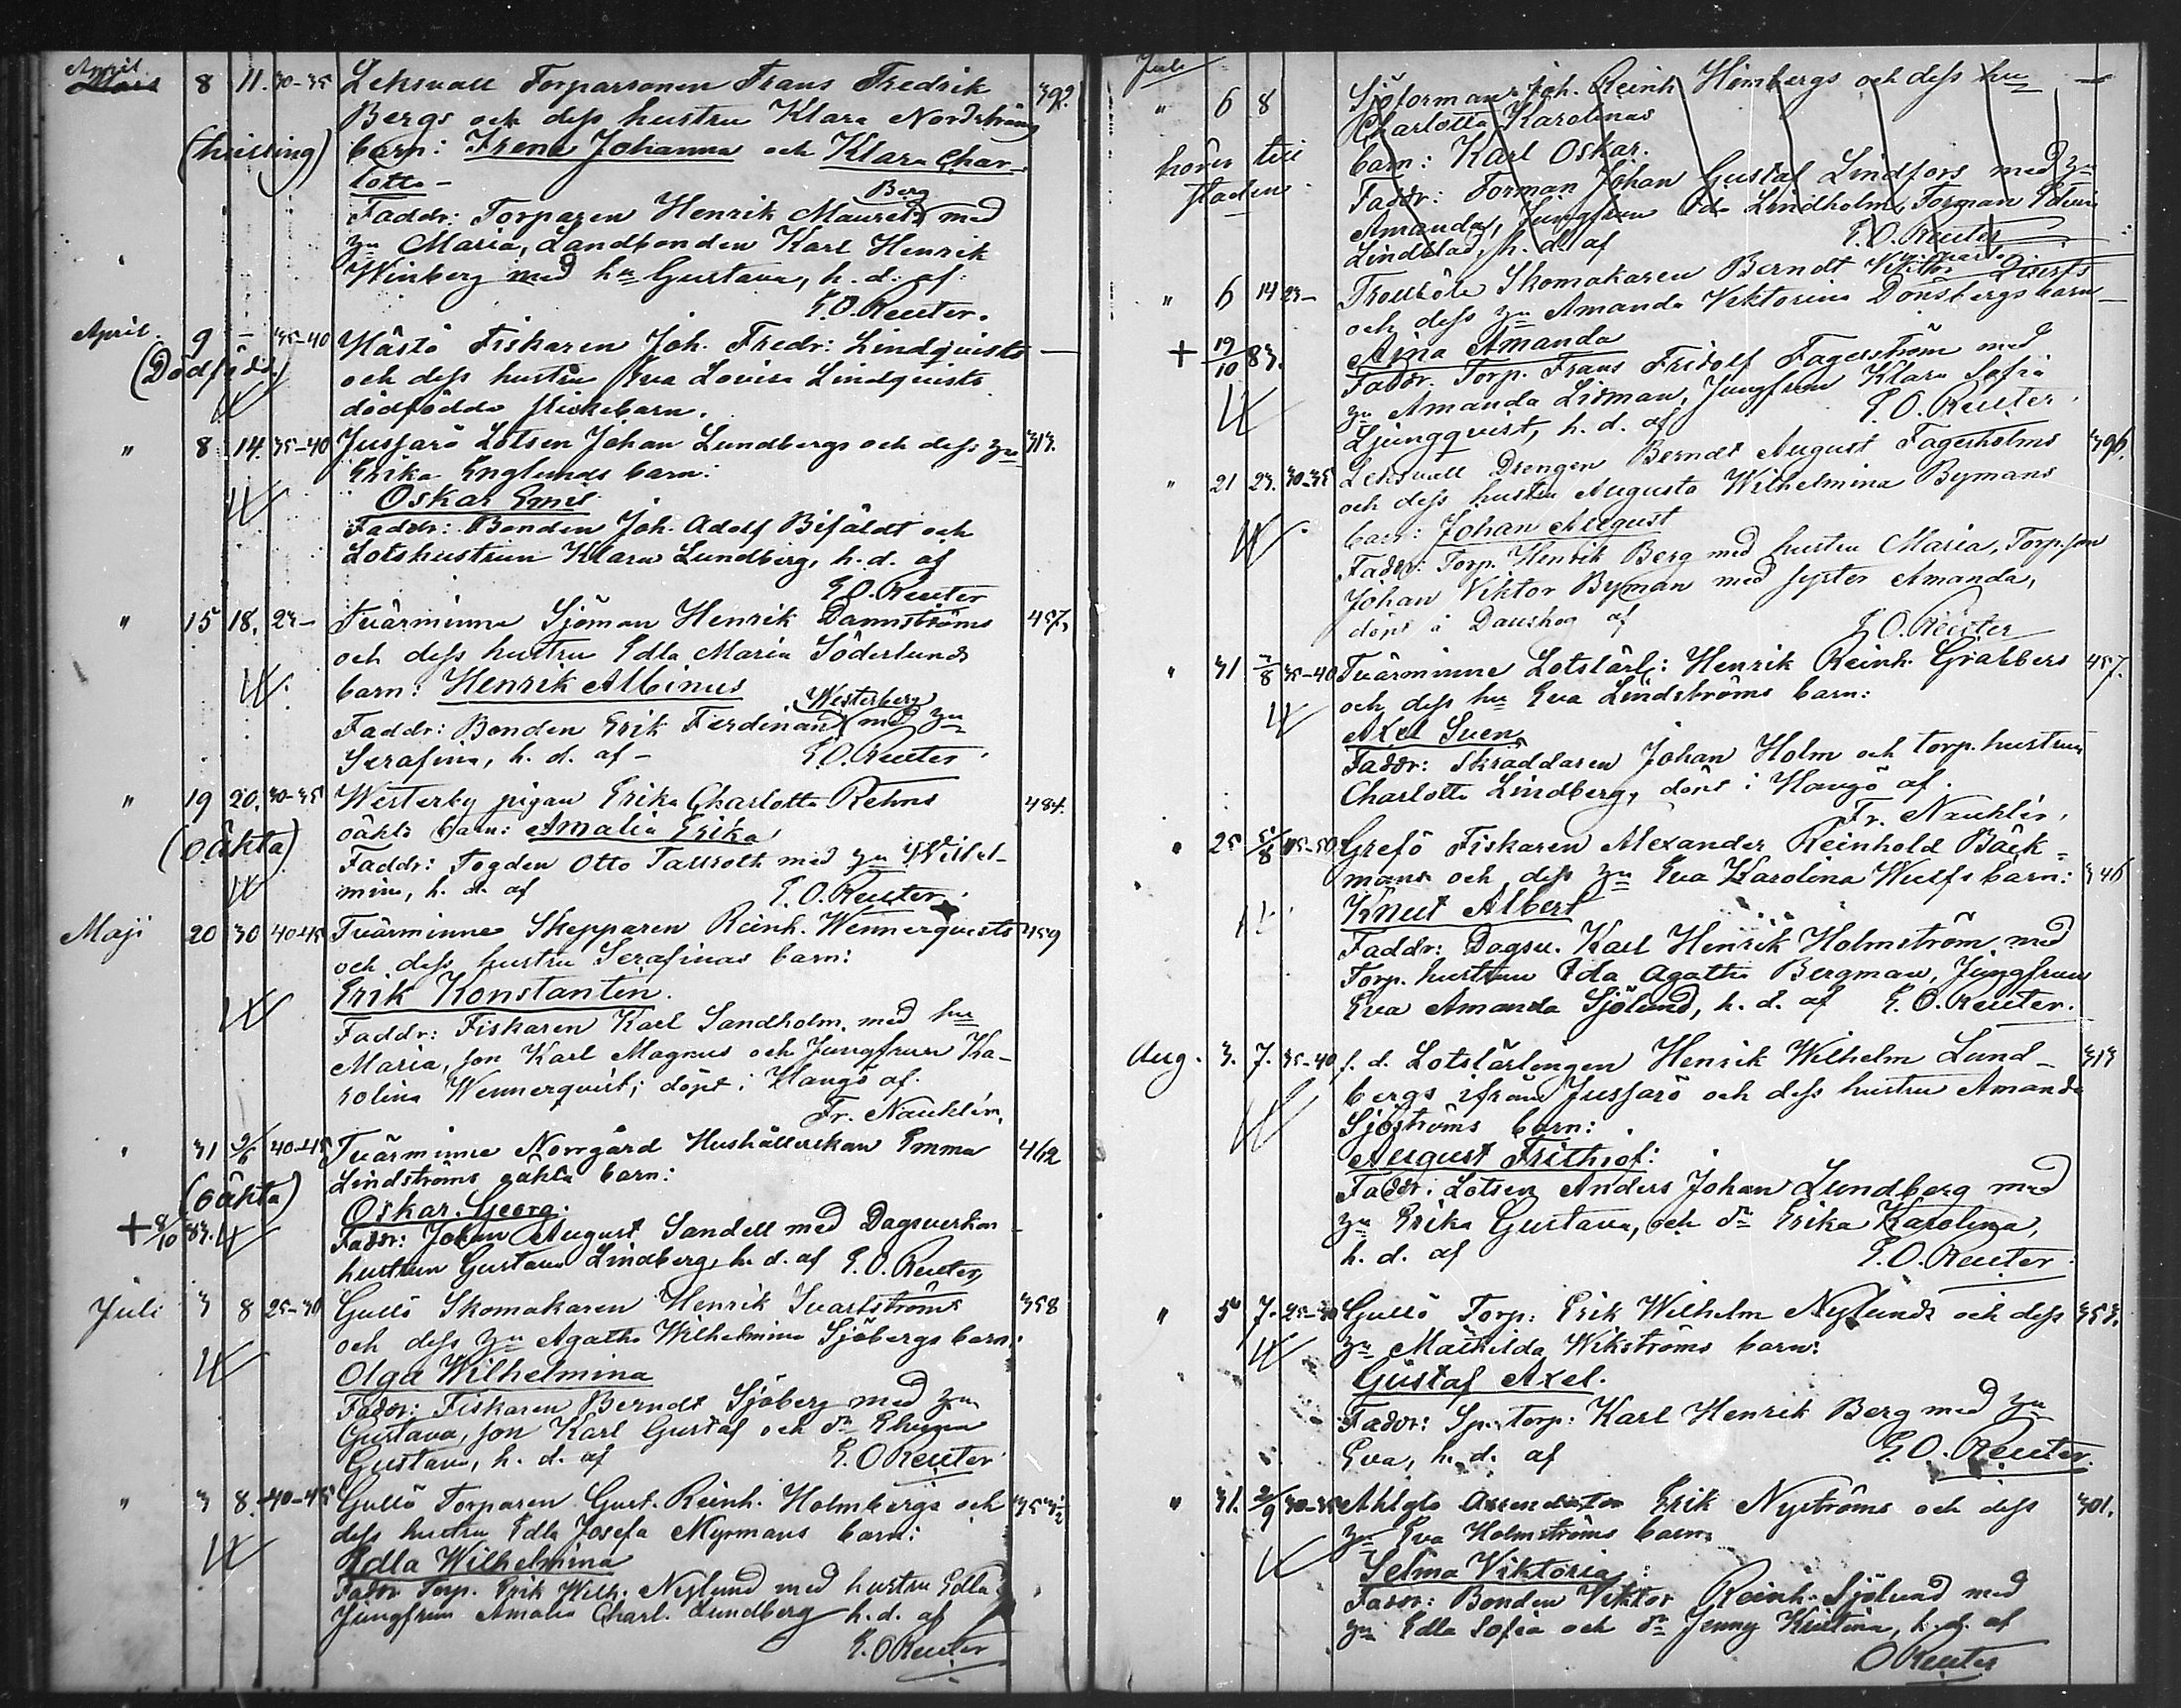 April
Mars 8 11. 30-35 Leksvall Torparsonen Frans Fredrik 392.
Bergs och dess hustru Klara Nordström
(tvilling) barn: Irene Johanna och Klara Char-
lotta -
Berg
Faddr: Torparen Henrik med
hu Maria, Landbonden Karl Henrik
Winberg med hu Gustava, h. d. af
E.O. Reuter.
April. 9 - 35-40 Hästö Fiskaren Joh. Fredr: Lindqvists —
(Dödfödd.) och dess hustru Eva Lovisa Lindqvists
dödfödda flickebarn.
" 8 14. 35-40 Jussarö Lotsen Johan Lundbergs och dess hu 313.
Erika Englunds barn:
Oskar Emil
Faddr: Bonden Joh. Adolf Bifäldt och
Lotshustrun Klara Lundberg, h. d. af
E.O. Reuter
" 15 18. 23- Tvärminne Sjöman Henrik Dannströms 457,
och dess hustru Edla Maria Söderlunds
barn: Henrik Albinus
Westerberg
Faddr: Bonden Erik Ferdinand med hu
Serafina, h. d. af - E.O. Reuter.
" 19 20. 30-35 Westerby pigan Erika Charlotta Rehns 484.
(oäkta) oäkta barn: Amalia Erika
Faddr: Fogden Otto Tallroth med hu Wilhel-
mina, h. d. af E.O. Reuter.
Maji 20 30 40-45 Tvärminne Skepparen Reinh. Wennerqvists 459
och dess hustru Serafinas barn:
Erik Konstantin.
Faddr: Fiskaren Karl Sandholm, med hu
Maria, son Karl Magnus och Jungfrun Ka-
rolina Wennerqvist, döpt i Hangö af.
Fr. Nauklér.
" 31 2/6 40-45 Tvärminne Norrgård Hushållerskan Emma 462
(oäkta) Lindströms oäkta barn:
Oskar Georg.
+ 8/10 83. Faddr: Johan August Sandell med Dagsverkar
hustrun Gustava Lindberg, h. d. af E.O. Reuter,
Juli 3 8 25-30 Gullö Skomakaren Henrik Svartströms 358
och dess hu Agatha Wilhelmina Sjöbergs barn:
Olga Wilhelmina
Faddr: Fiskaren Berndt Sjöberg med hu
Gustava, son Karl Gustaf och dr
Gustava, h. d. af E.O Reuter
" 3 8. 40-45 Gullö Torparen Gust. Reinh. Holmbergs och 353½
dess hustru Edla Josefa Nymans barn:
Edla Wilhelmina
Faddr Torp. Erik Wilh. Nylund med hustru Edla
Jungfrun Amalia Charl. Lundberg h. d. af
E.O Reuter
Juli
" 6 8 Sjöforman Joh. Reinh. Himbergs och dess hu —
Charlotta Karolinas
hörer till barn: Karl Oskar.
staden. Faddr: Forman Johan Gustaf Lindfors med hu
Amanda, Jungfrun Ida Lindholm, Forman Edvin
Lindblad, h. d. af E.O. Reuter
" 6 14 23- Trollböle Skomakaren Berndt Viktor
och dess hu Amanda Viktorina Dönsbergs barn —
+ 19/10 83. Aina Amanda
Faddr. Torp. Frans Fridolf Fagerström med
hu Amanda Lidman, Jungfrun Klara Sofia
Ljungqvist, h. d. af E.O. Reuter.
" 21 23. 30-35 Leksvall Drengen Berndt August Fagerholms 396.
och dess hustru Augusta Wilhelmina Bymans
barn: Johan August
Faddr: Torp. Henrik Berg med hustru Maria, Torp.son
Johan Viktor Byman med syster Amanda,
döpt å Danskog af E.O. Reuter
" 31 7/8 35-40 Tvärminne Lotslärl: Henrik Reinh. Grabbers 457.
och dess hu Eva Lindströms barn:
Axel Sven
Faddr: Skräddaren Johan Holm och torp.hustrun
Charlotta Lindberg, döpt i Hangö af.
Fr. Nauklér,
" 25 5/8 45-50 Grefö Fiskaren Alexander Reinhold Bäck-
mans och dess hu Eva Karolina Wulfs barn: 346
Knut Albert
Faddr: Dagsv. Karl Henrik Holmström med
Torp.hustrun Ida Agatha Bergman, Jungfrun
Eva Amanda Sjölund, h. d. af E.O. Reuter.
Aug. 3. 7. 35-40 f. d. Lotslärlingen Henrik Wilhelm Lund- 313
bergs ifrån Jussarö och dess hustru Amanda
Sjöströms barn:
August Frithiof:
Faddr. Lotsen Anders Johan Lundberg med
hu Erika Gustava, och dr Erika Karolina,
h. d. af E.O. Reuter
" 5 7. 25-30 Gullö Torp: Erik Wilhelm Nylunds och dess 353.
hu Mathilda Wikströms barn:
Gustaf Axel.
Faddr: Sp. torp: Karl Henrik Berg med hu
Eva, h. d. af E.O. Reuter.
" 31. 2/9 30-35 Arrendator Erik Nyströms och dess 301.
hu Eva Holmströms barn:
Selma Viktoria:
Faddr: Bonden Viktor Reinh. Sjölund med
hu Edla Sofia och dr Jenny Kristina, h. d. af
O Reuter